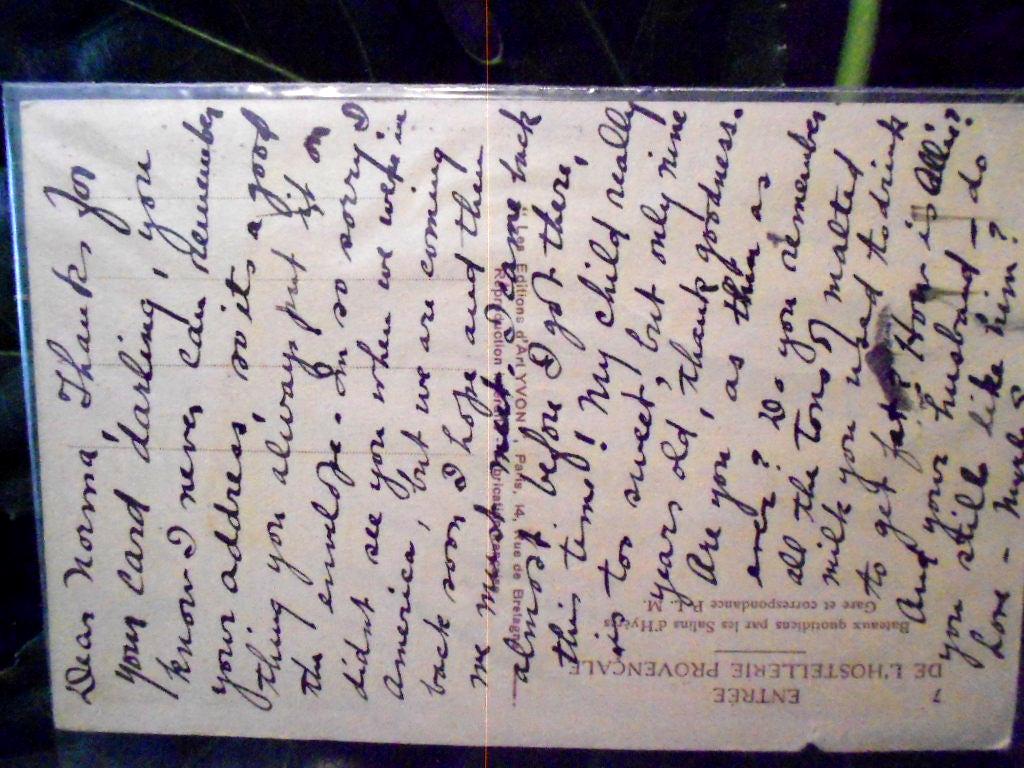 Dear Norma, Thanks for
your card darling, you
know I never can remember
your address, so its a good
thing you always put it on
the envelope. Im so sorry I
didnt see you when we were in
America, but we are coming
back soon I hope and then
we must meet. I came back
almost before I got there,
this time! My child really
is too sweet, but only nine
years old, thank goodness.
Are you as thin as
ever? Do you remember
all the tons of malted
milk you used to drink
to get fat? How is Allie?
And your husband – do
you still like him?
Love –
" Les Editions d'Art YVON " Paris, 14, Rue de Bretagne
Reproduction
7
ENTRÉE
DE L'HOSTELLERIE PROVENÇALE
Bateaux quotidiens par les Salins d'Hyères
Gare et correspondance P.-L.-M.